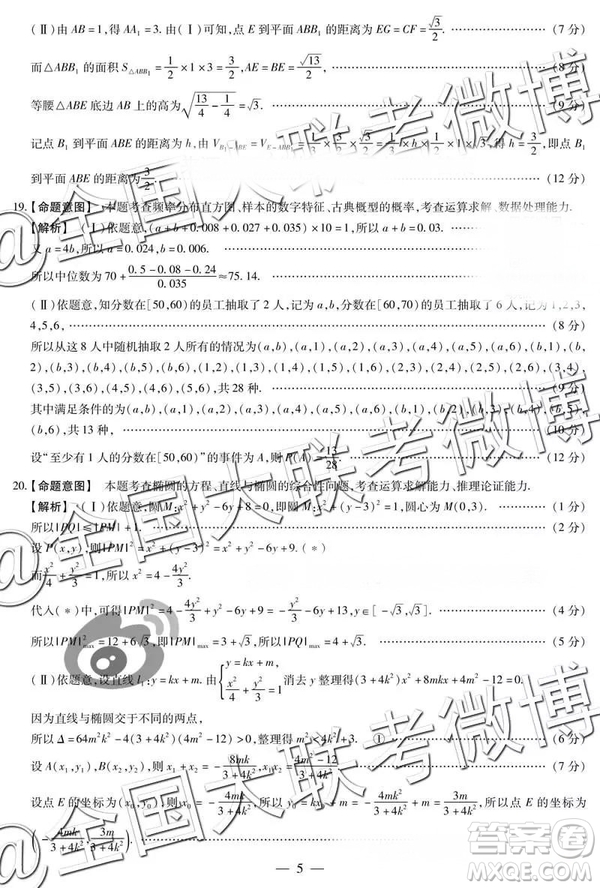 (Ⅱ)由 AB=1,得 AA₁=3. 由(Ⅰ)可知,点 E 到平面 ABB₁ 的距离为 EG=CF=√3/2. (7 分)
而△ABB₁ 的面积 S△ABB₁=1/2×1×3=3/2,AE=BE=√13/2, (8 分)
等腰△ABE 底边 AB 上的高为√(13/4-1/4)=√3. (9 分)
记点 B₁ 到平面 ABE 的距离为 h,由 V
到平面 ABE 的距离为3/2. (12 分)
19.【命题意图】 本题考查频率分布直方图、样本的数字特征、古典概型的概率,考查运算求解、数据处理能力.
【解析】 (Ⅰ)依题意,(a+b+0.008+0.027+0.035)×10=1,所以 a+b=0.03.
又 a=4b,所以 a=0.024,b=0.006.
所以中位数为 70+(0.5-0.08-0.24)/0.035≈75.14.
(Ⅱ)依题意,知分数在[50,60)的员工抽取了 2 人,记为 a,b,分数在[60,70)的员工抽取了 6 人,记为 1,2,3,
4,5,6, (8 分)
所以从这 8 人中随机抽取 2 人所有的情况为(a,b),(a,1),(a,2),(a,3),(a,4),(a,5),(a,6),(b,1),(b,
2),(b,3),(b,4),(b,5),(b,6),(1,2),(1,3),(1,4),(1,5),(1,6),(2,3),(2,4),(2,5),(2,6),(3,4),
(3,5),(3,6),(4,5),(4,6),(5,6),共 28 种. (9 分)
其中满足条件的为(a,b),(a,1),(a,2),(a,3),(a,4),(a,5),(a,6),(b,1),(b,2),(b,3),(b,4),(b,5),
(b,6),共 13 种, (10 分)
设“至少有 1 人的分数在[50,60)”的事件为 A,则 P(A)=13/28. (12 分)
20.【命题意图】 本题考查椭圆的方程、直线与椭圆的综合性问题,考查运算求解能力、推理论证能力.
【解析】 (Ⅰ)依题意,圆M:x²+y²-6y+8=0,即圆M:x²+(y-3)²=1,圆心为 M(0,3). (1 分)
所以|PQ|≤|PM|+1. (2 分)
设 P(x,y),则|PM|²=x²+(y-3)²=x²+y²-6y+9. (*)
而x²/4+y²/3=1,所以 x²=4-4y²/3.
代入(*)中,可得|PM|²=4-4y²/3+y²-6y+9=-y²/3-6y+13,y∈[-√3,√3]. (4 分)
所以|PM|²max=12+6√3,即|PM|max=3+√3,所以|PQ|max=4+√3. (5 分)
(Ⅱ)依题意,设直线 l₁:y=kx+m. 由{y=kx+m, x²/4+y²/3=1}消去 y 整理得(3+4k²)x²+8mkx+4m²-12=0.
因为直线与椭圆交于不同的两点,
所以 Δ=64m²k²-4(3+4k²)(4m²-12)>0,整理得 m²<4k²+3. ① (6 分)
设 A(x₁,y₁),B(x₂,y₂),则 x₁+x₂=-8mk/(3+4k²),x₁x₂=(4m²-12)/(3+4k²). (7 分)
设点 E 的坐标为(x₀,y₀),则 x₀=-4mk/(3+4k²),所以 y₀=kx₀+m=-4mk/(3+4k²)·k+m=3m/(3+4k²),所以点 E 的坐标为
(-4mk/(3+4k²),3m/(3+4k²)). (8 分)
— 5 —
@全国大联考微博
答案圈
MXQE.COM